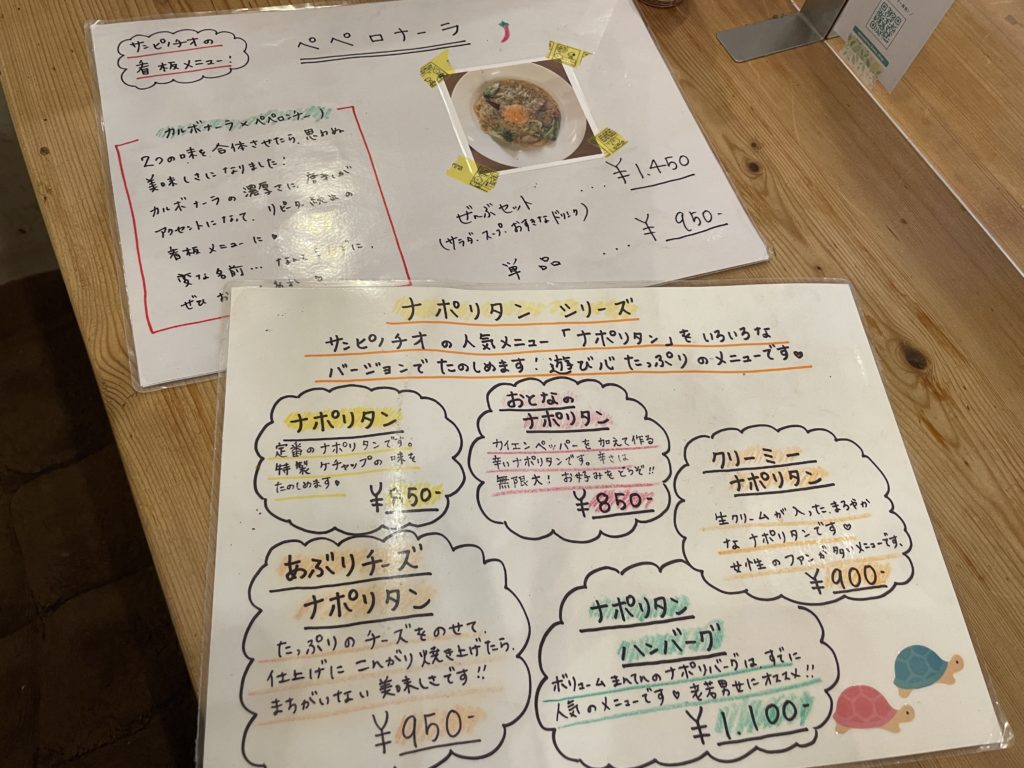 サンピノチオの
看板メニュー!
ペペロナーラ
カルボナーラ×ペペロンチーノ
2つの味を合体させたら、思わぬ
美味しさになりました!
カルボナーラの濃厚さに、唐辛子が
アクセントになって、リピーター
看板メニューに♥
変な名前…なんて
ぜひ
¥1.450
ぜんぶセット
(サラダ、スープ、おすきなドリンク)
¥950-
単品
ナポリタンシリーズ
サンピノチオの人気メニュー「ナポリタン」をいろいろな
バージョンでたのしめます!遊び心たっぷりのメニューです♥
ナポリタン
定番のナポリタンです。
特製ケチャップの味を
たのしめます♥
¥850-
おとなの
ナポリタン
カイエンペッパーを加えて作る
辛いナポリタンです。辛さは
無限大!お好みをどうぞ!!
¥850-
クリーミー
ナポリタン
生クリームが入った、まろやか
なナポリタンです♥
女性のファンが多いメニューです。
¥900-
あぶりチーズ
ナポリタン
たっぷりのチーズをのせて、
仕上げにこんがり焼き上げたら、
まちがいない美味しさです!!
¥950-
ナポリタン
ハンバーグ
ボリュームまんてんのナポリバーグは、すでに
人気のメニューです♥老若男女にオススメ!!
¥1.100-